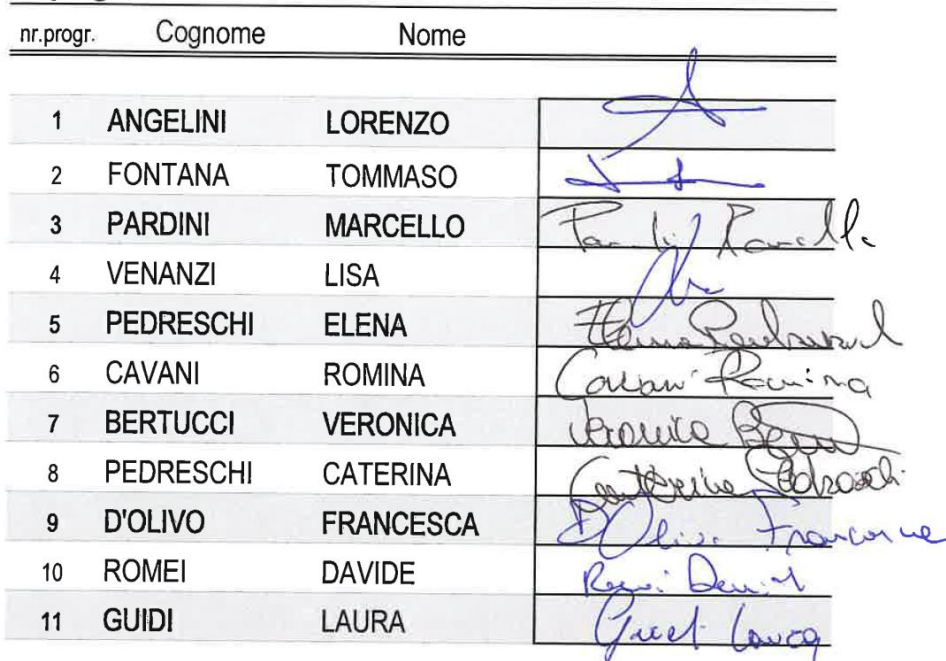 nr.progr. Cognome Nome
1 ANGELINI LORENZO
2 FONTANA TOMMASO
3 PARDINI MARCELLO
4 VENANZI LISA
5 PEDRESCHI ELENA Elena Pedreschi
6 CAVANI ROMINA Cavani Romina
7 BERTUCCI VERONICA Veronica
8 PEDRESCHI CATERINA Caterina Pedreschi
9 D'OLIVO FRANCESCA D'Olivo Francesca
10 ROMEI DAVIDE Romei David
11 GUIDI LAURA Guidi Laura